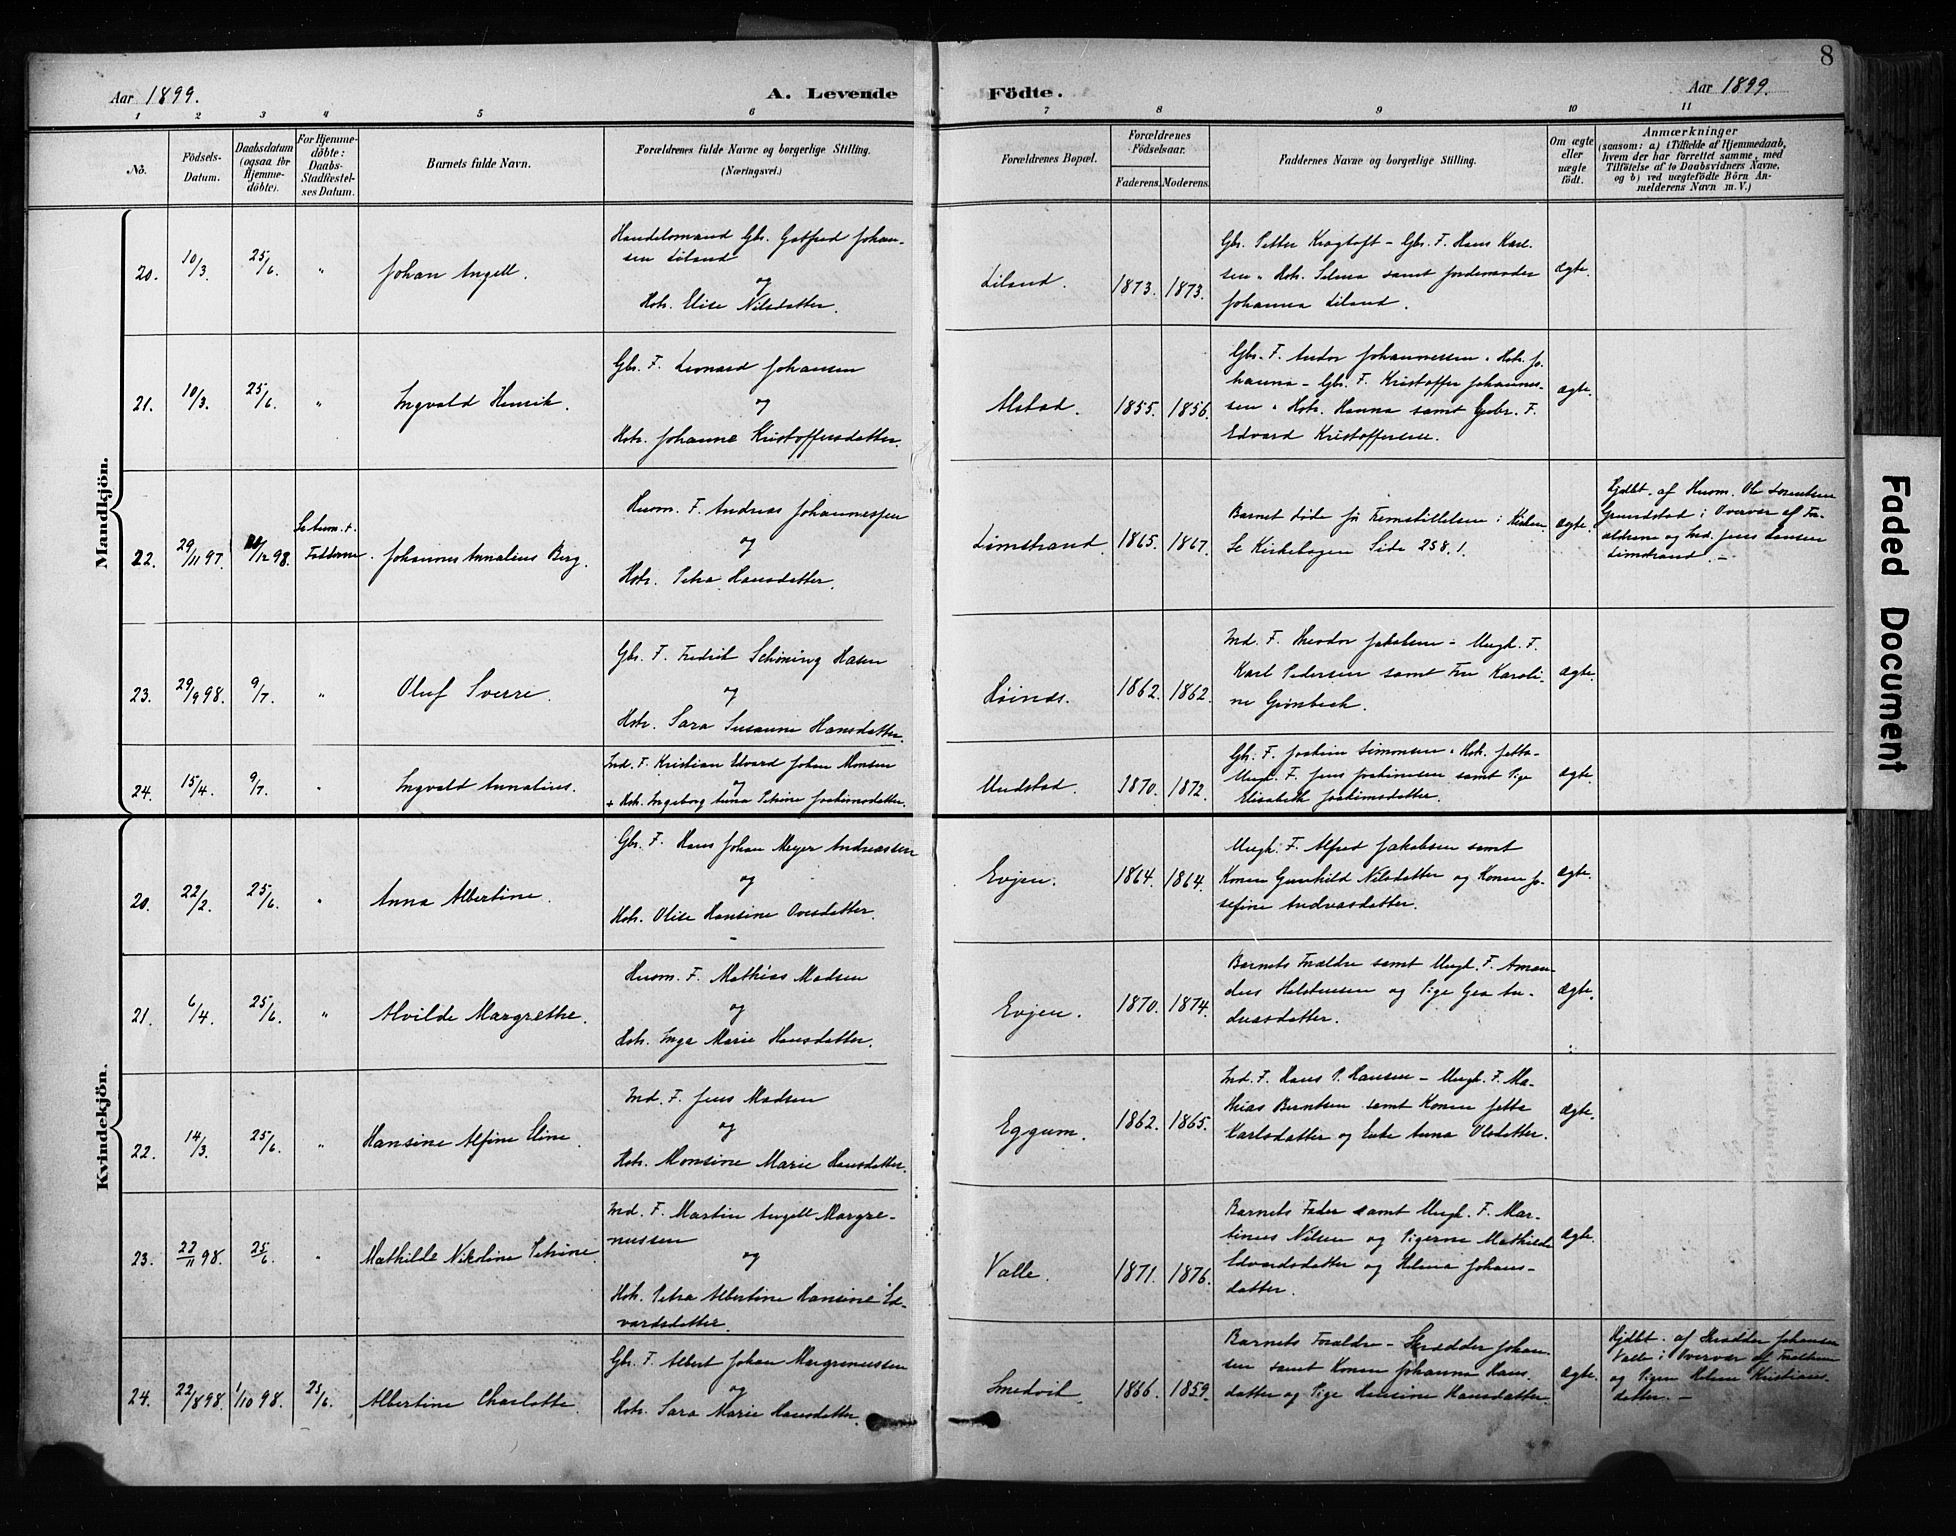 8
Aar 1899. A. Levende Födte. Aar 1899.
1 2 3 4 5 6 7 8 9 10 11
No. Födsels-Datum. Daabsdatum (ogsaa for Hjemmedöbte). For Hjemmedöbte: Daabs-Stadfæstelses Datum. Barnets fulde Navn. Forældrenes fulde Navne og borgerlige Stilling. (Næringsvei.) Forældrenes Bopæl. Forældrenes Födselsaar. Faderens. Moderens. Faddernes Navne og borgerlige Stilling. Om ægte eller uægte födt. Anmærkninger (saasom: a) i Tilfælde af Hjemmedaab, hvem der har forrettet samme, med Tilföielse af to Daabsvidners Navne, og b) ved uægtefödte Börn Anmelderens Navn m. V.)
Mandkjön.
20. 10/3. 25/6. " Johan Angell.
Handelsmand Gbr. Gotfred Johan-
sen Liland
og
Hstr. Elise Nilsdatter.
Liland. 1873. 1873.
Gbr. Petter Kragtoft - Gbr. F. Hans Karl-
sen, Hstr. Selma samt Jordemoder
Johanna Liland.
ægte.
21. 10/3. 25/6. " Ingvald Henrik.
Gbr. F. Leonard Johansen
og
Hstr. Johanne Kristoffersdatter.
Alstad. 1855. 1856.
Gbr. F. Andor Johannessen, Hstr. Jo-
hanna - Gbr. F. Kristoffer Johannes-
sen, Hstr. Hanna samt Gbr. F.
Edvard Kristoffersen.
ægte.
22. 29/11 97. /12 98. Fadderne. Johannes Annalius Berg.
Husm. F. Andreas Johannessen
og
Hstr. Petra Hansdatter.
Limstrand. 1865. 1867.
Barnet døde før Fremstillelsen i Kirken.
Se Kirkebogen Side 258.!
ægte.
Hjdbt. af Husm. Ole Lorentsen
Grundstad i Overvær af For-
ældrene og Ind. Jens Hansen
Limstrand. -
23. 29/9 98. 9/7. " Oluf Sverre.
Gbr. F. Fredrik Schöning Hasen
og
Hstr. Sara Susanne Hansdatter.
1862. 1862.
Ind. F. Theodor Jakobsen - Ungk. F.
Karl Pedersen samt Fru Karoli-
ne Grönbech.
ægte.
24. 15/4. 9/7. " Ingvald Annalius.
Ind. F. Kristian Edvard Johan Monsen
og
+ Hstr. Ingeborg Anna Petrine Joakimsdatter.
Undstad. 1870. 1872.
Gbr. F. Joakim Simonsen, Hstr. Jetta -
Ungk. F. Jens Joakimsen samt Pige
Elisabeth Joakimsdatter.
ægte.
Kvindekjön.
20. 22/2. 25/6. " Anna Albertine.
Gbr. F. Hans Johan Meyer Andreassen
og
Hstr. Olise Hansine Ovesdatter.
Evjen. 1864. 1864.
Ungk. F. Alfred Jakobsen samt
Konen Gunhild Nilsdatter og Konen Jo-
sefine Andreasdatter.
ægte.
21. 6/4. 25/6. " Alvilde Margrethe.
Husm. F. Mathias Madsen
og
Hstr. Inga Marie Hansdatter.
Evjen. 1870. 1874.
Barnets Forældre samt Ungk. F. Aman-
dus Halstensen og Pige Gea An-
dreasdatter.
ægte.
22. 14/3. 25/6. " Hansine Alfine Eline.
Ind. F. Jens Madsen
og
Hstr. Monsine Marie Hansdatter.
Eggum. 1862. 1865.
Ind. F. Hans P. Hansen - Ungk. F. Ma-
thias Berntsen samt Konen Jetta
Karlsdatter og Enke Anna Olsdatter.
ægte.
23. 22/11 98. 25/6. " Mathilde Nikoline Petrine.
Ind. F. Martin Angell Margre-
nussen
og
Hstr. Petra Albertine Hansine Ed-
vardsdatter.
Valle. 1871. 1876.
Barnets Fader samt Ungk. F. Mar-
tinus Nilsen og Pigerne Mathilde
Edvardsdatter og Helena Johans-
datter.
ægte.
24. 22/8 98. 1/10 98. 25/6. Albertine Charlotte.
Gbr. F. Albert Johan Margrenussen
og
Hstr. Sara Marie Hansdatter.
Smedvik. 1866. 1859.
Barnets Forældre - Skrædder Johan-
sen samt Konen Johanna Hans-
datter og Pige Hansine Hansdatter.
ægte.
Hjdbt. af Skrædder Johansen
Valle i Overvær af Forældrene
og Pigen Helene Kristians-
datter. -
Faded Document